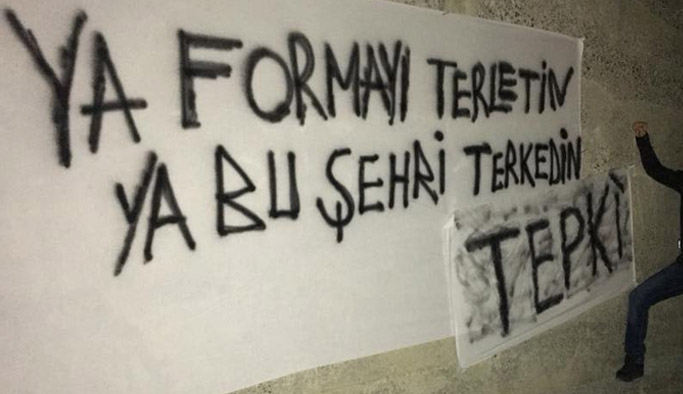 YA FORMAYI TERLETİN
YA BU ŞEHRİ TERKEDİN
TEPKİ